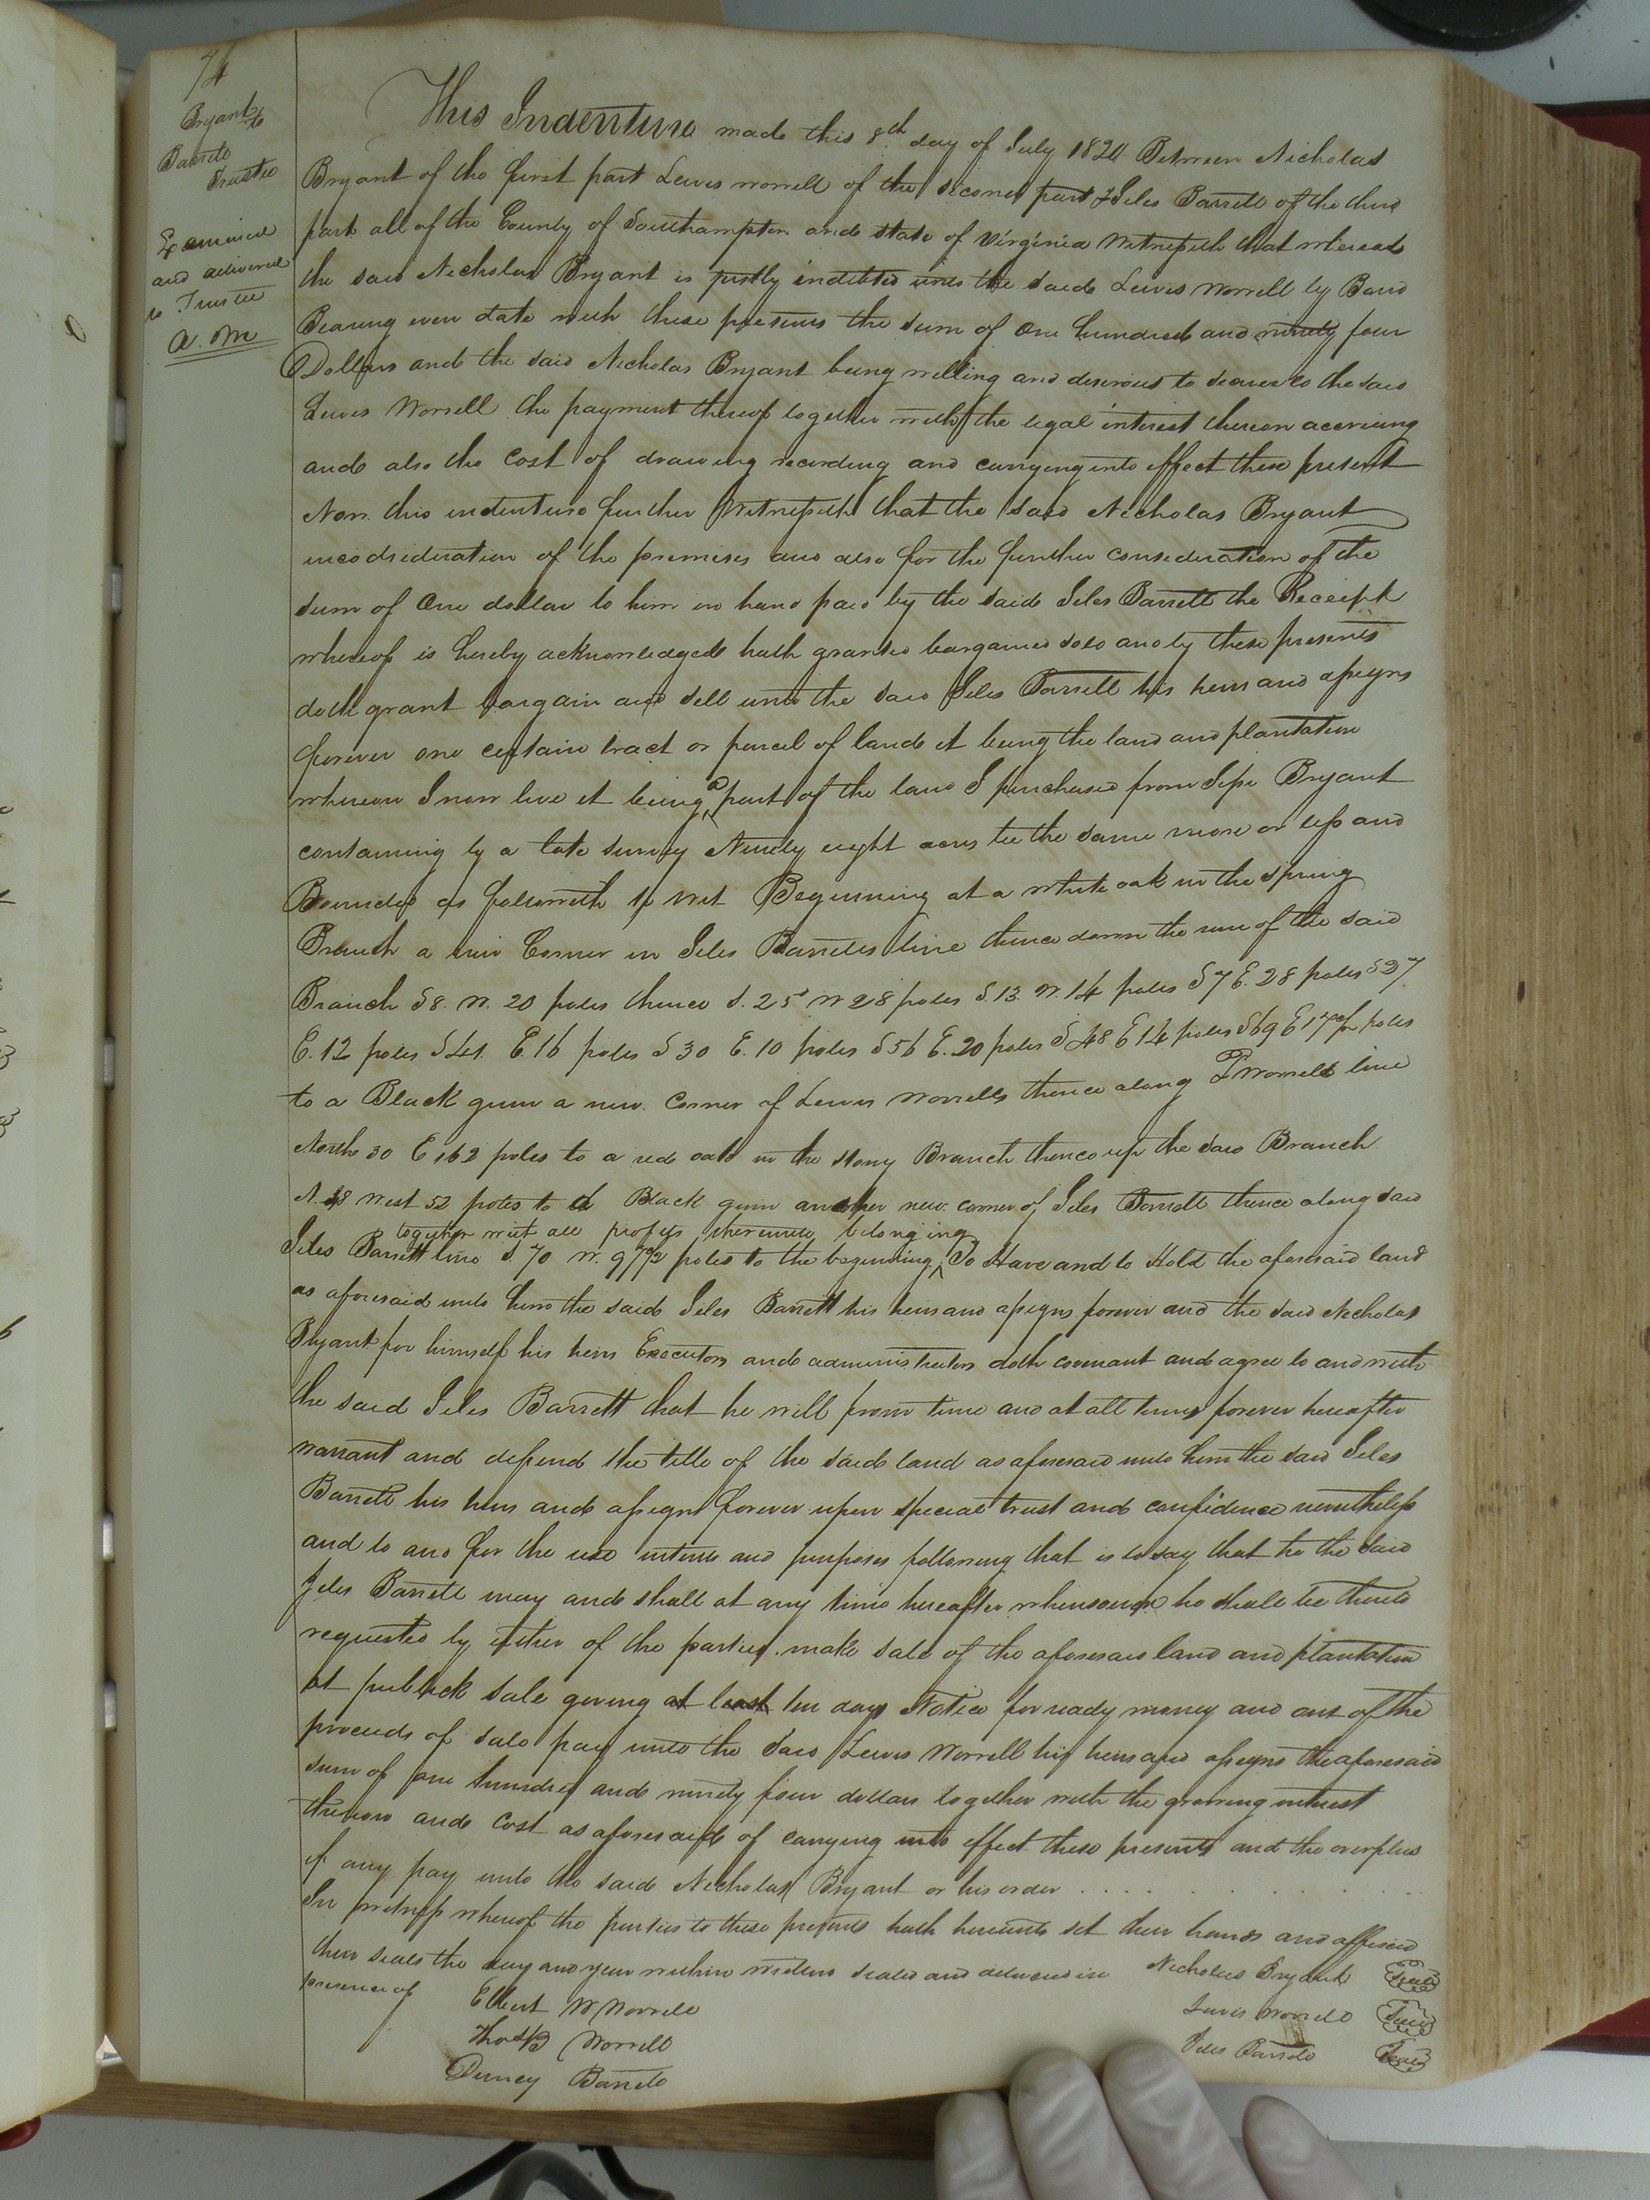 74
Bryant to
Barrett
Trustee
Examined
and delivered
to Trustee
A. M
This Indenture made this 8th day of July 1820 Between Nicholas
Bryant of the first part Lewis worrell of the second part & Giles Barrett of the third
part all of the County of Southampton and state of Virginia Witnesseth that whereas
the said Nicholas Bryant is justly indebted unto the said Lewis Worrell by Bond
Bearing even date with these presents the sum of One hundred and ninety four
Dollars and the said Nicholas Bryant being willing and desirous to secure to the said
Lewis Worrell the payment thereof together with the legal interest thereon accruing
and also the Cost of drawing recording and carrying into effect these present
Now this indenture further Witnesseth that the said Nicholas Bryant
in consideration of the premises and also for the further consideration of the
sum of One dollar to him in hand paid by the said Giles Barrett the Receipt
whereof is hereby acknowledged hath granted bargained sold and by these presents
doth grant bargain and sell unto the said Giles Barrett his heirs and assigns
forever one certain tract or parcel of land it being the land and plantation
whereon I now live it being a part of the land I purchased from Jesse Bryant
containing by a late survey Ninety eight acres be the same more or less and
Bounded as followeth to wit Beginning at a white oak in the spring
Branch a new Corner in Giles Barretts line thence down the run of the said
Branch S 8. W. 20 poles thence S. 25 W 28 poles S. 13. W. 14 poles S 7 E. 28 poles S 27
E. 12 poles S 41. E. 16 poles S 30 E. 10 poles S 56 E. 20 poles S 48 E 14 poles S 69 E 17 poles
to a Black gum a new Corner of Lewis Worrells thence along L Worrells line
North 30 E 162 poles to a red oak in the stony Branch thence up the said Branch
N. 38 West 52 poles to a Black gum another new corner of Giles Barrett thence along said
together with all profits thereunto belonging
Giles Barrett line S. 70 W. 97 1/2 poles to the beginning ^ To Have and to Hold the aforesaid land
as aforesaid unto him the said Giles Barrett his heirs and assigns forever and the said Nicholas
Bryant for himself his heirs Executors and administrators doth covenant and agree to and with
the said Giles Barrett that he will from time and at all times forever hereafter
warrant and defend the title of the said land as aforesaid unto him the said Giles
Barrett his heirs and assigns forever upon special trust and confidence nevertheless
and to and for the use intents and purposes following that is to say that he the said
Giles Barrett may and shall at any time hereafter whensoever he shall be thereto
requested by either of the parties make sale of the aforesaid land and plantation
at publick sale giving at least ten days Notice for ready money and out of the
proceeds of sale pay unto the said Lewis Worrell his heirs and assigns the aforesaid
sum of one hundred and ninety four dollars together with the growing interest
thereon and Cost as aforesaid of carrying into effect these presents and the overplus
if any pay unto the said Nicholas Bryant or his order . . . .
In witness whereof the parties to these presents hath hereunto set their hands and affixed
their seals the day and year within written sealed and delivered in Nicholas Bryant Seal
presence of Elbert W Worrell Lewis Worrell Seal
Thos B Worrell Giles Barrett Seal
Demcy Barrett